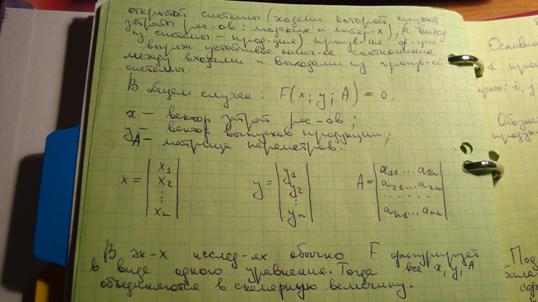 открытой системы (входами которой служат
затраты рес-ов: людских и матер-х), а выход
из системы – продукция) произв-ая ф-ция
выраж. устойчивое колич-ое соотношение
между входами и выходами из произв-ой
системы.
В общем случае: F(x; y; A) = 0.
x – вектор затрат рес-ов;
y – вектор выпусков продукции;
A – матрица параметров.
x = | x₁ x₂ ⋮ xₙ | y = | y₁ y₂ ⋮ yₙ | A = | a₁₁ ... a₁ₙ a₂₁ ... a₂ₙ ....... aₙ₁ ... aₙₙ |
В эк-х исслед-ях обычно F фигурирует
в виде одного уравнения. Тогда все x, y, A
объединяются в скалярную величину.